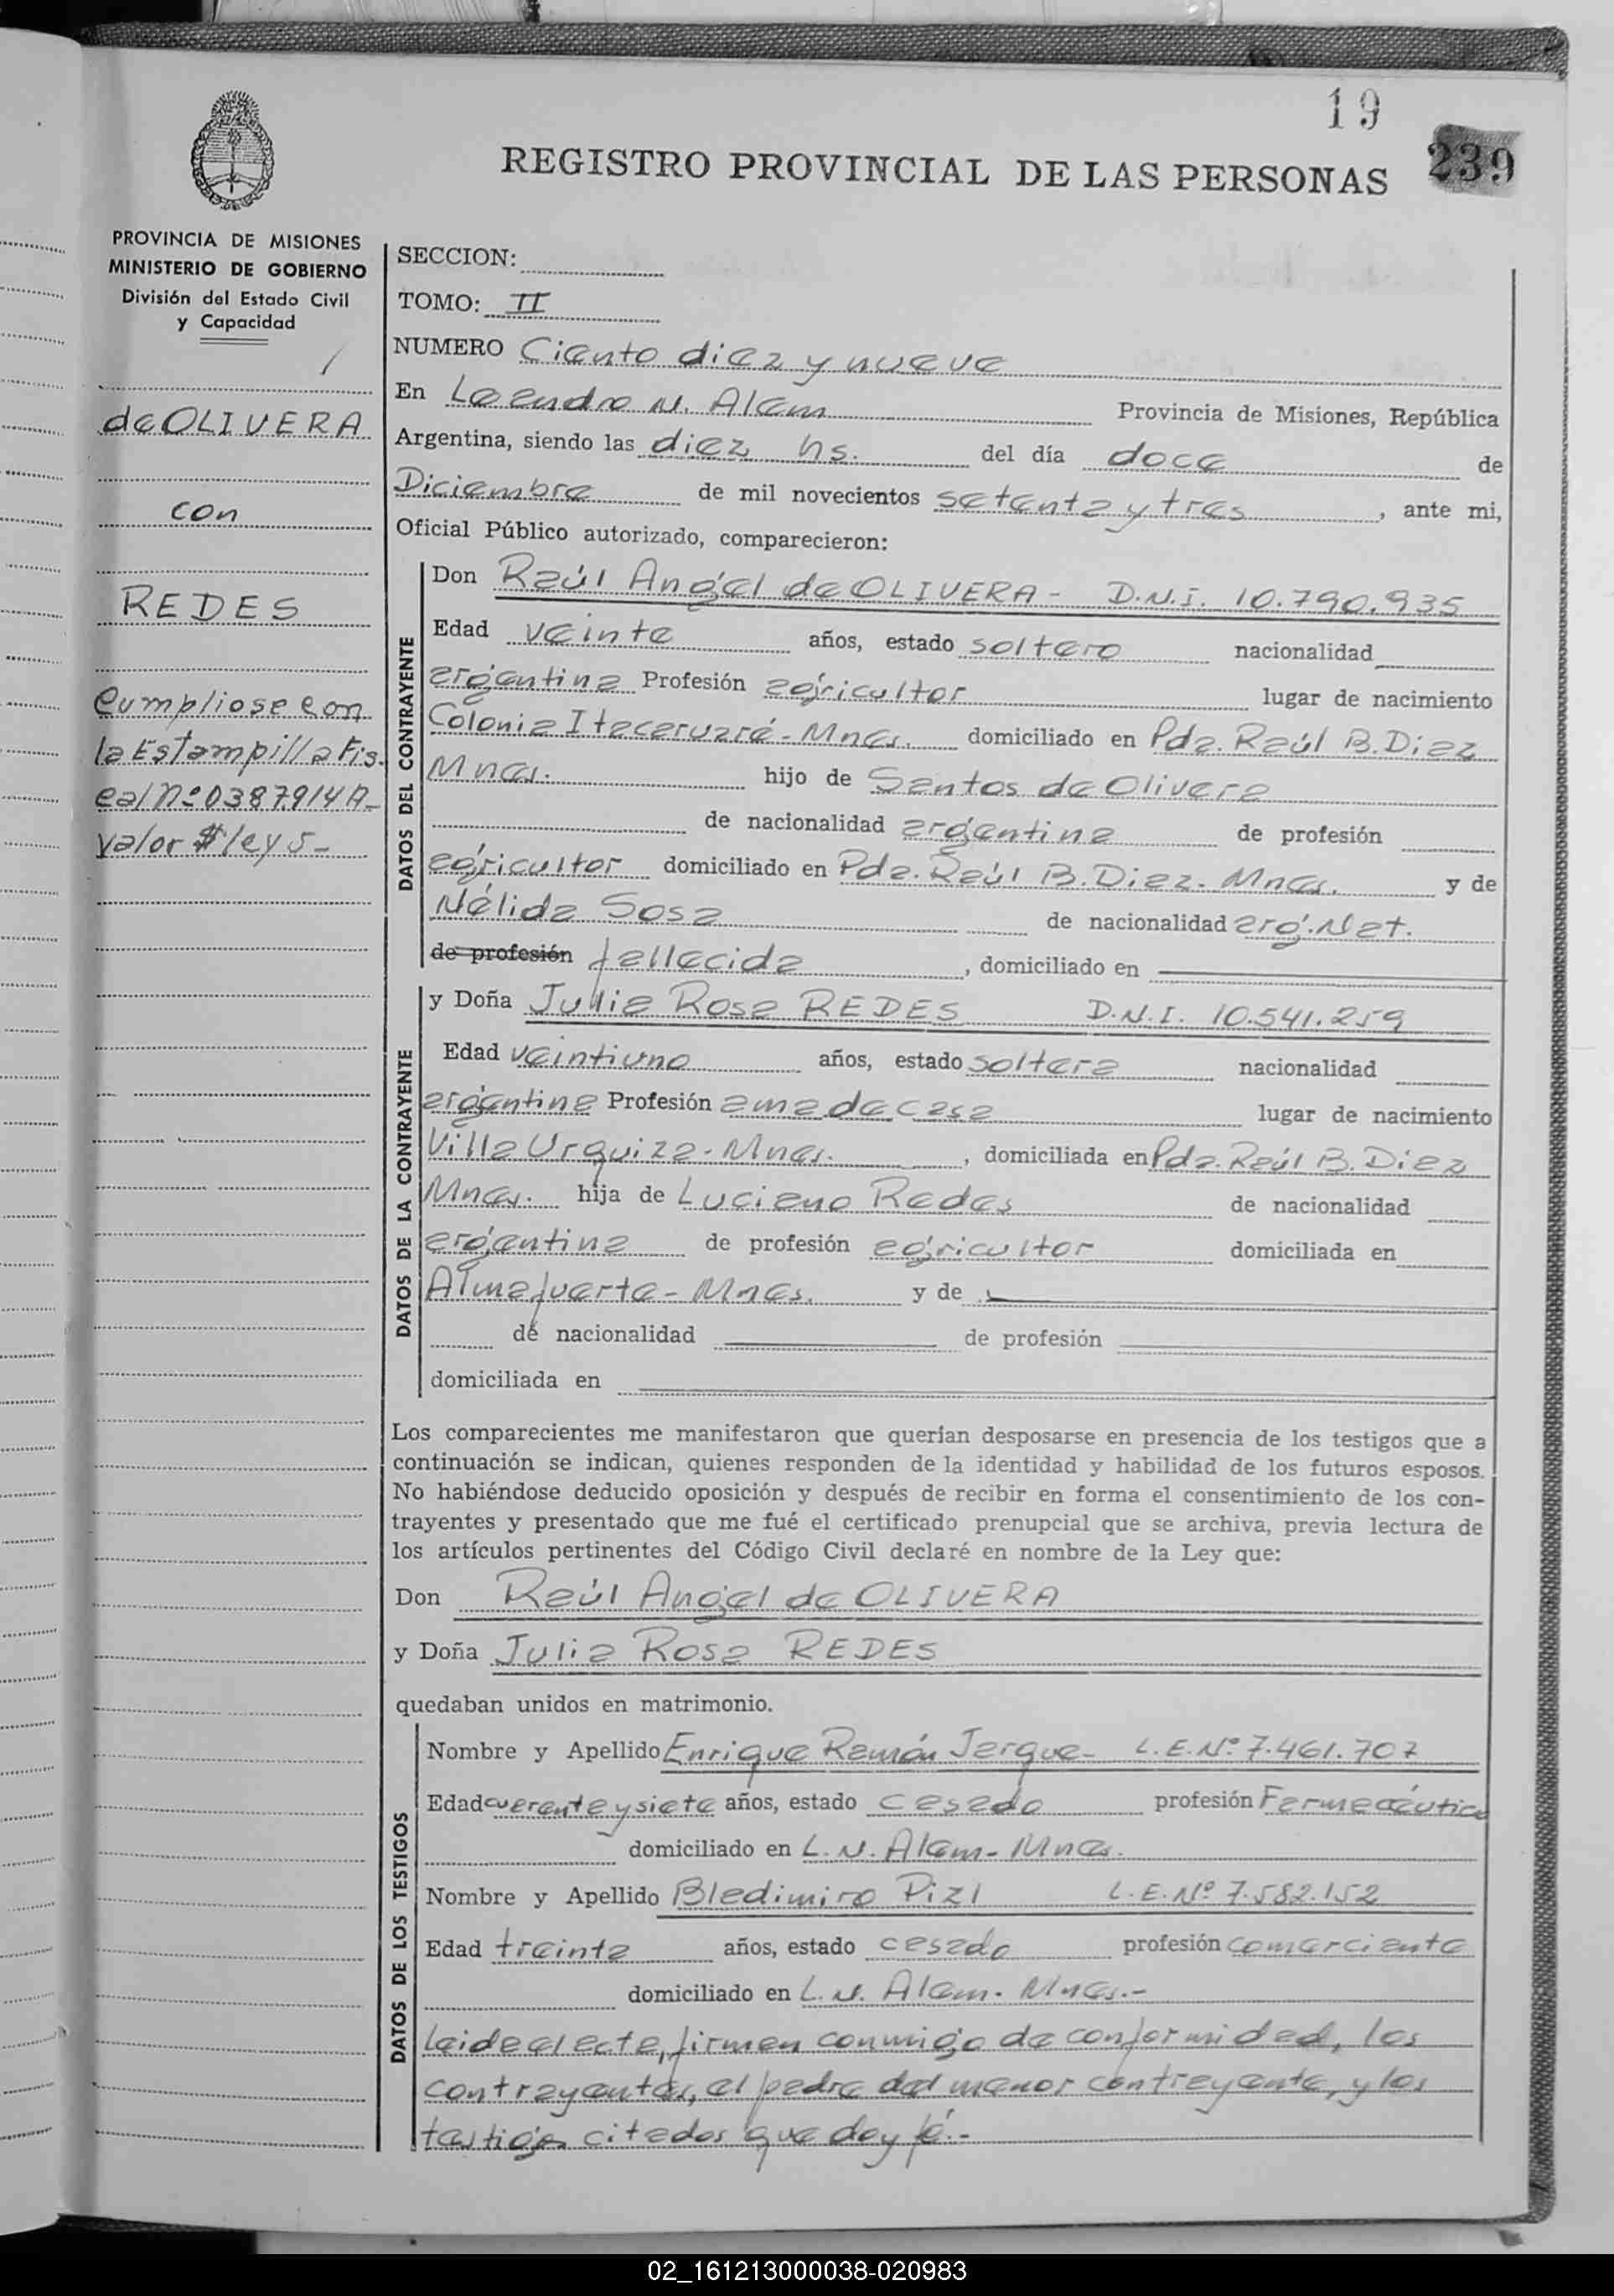 19
239
REGISTRO PROVINCIAL DE LAS PERSONAS
PROVINCIA DE MISIONES
MINISTERIO DE GOBIERNO
División del Estado Civil
y Capacidad
de OLIVERA
con
REDES
Cumpliose con
la Estampilla Fis-
cal Nº 0387914 A-
valor $ ley 5-
SECCION:
TOMO: II
NUMERO Ciento diez y nueve
En Leandro N. Alem Provincia de Misiones, República
Argentina, siendo las diez hs. del día doce de
Diciembre de mil novecientos setenta y tres, ante mi,
Oficial Público autorizado, comparecieron:
DATOS DEL CONTRAYENTE
Don Raúl Angel de OLIVERA - D.N.I. 10.790.935
Edad veinte años, estado soltero nacionalidad
argentina Profesión agricultor lugar de nacimiento
Colonia Itacaruaré - Mnes. domiciliado en Pda. Raúl B. Diaz
Mnes. hijo de Santos de Olivera
de nacionalidad argentina de profesión
agricultor domiciliado en Pda. Raúl B. Diez. Mnes. y de
Nélida Sosa de nacionalidad arg. Nat.
de profesión fallecida, domiciliado en
DATOS DE LA CONTRAYENTE
y Doña Julia Rosa REDES D.N.I. 10.541.259
Edad veintiuno años, estado soltera nacionalidad
argentina Profesión ama de casa lugar de nacimiento
Villa Urquiza - Mnes., domiciliada en Pda. Raúl B. Diez
Mnes. hija de Luciano Redes de nacionalidad
argentina de profesión agricultor domiciliada en
Almafuerte - Mnes. y de
de nacionalidad de profesión
domiciliada en
Los comparecientes me manifestaron que querían desposarse en presencia de los testigos que a
continuación se indican, quienes responden de la identidad y habilidad de los futuros esposos.
No habiéndose deducido oposición y después de recibir en forma el consentimiento de los con-
trayentes y presentado que me fué el certificado prenupcial que se archiva, previa lectura de
los artículos pertinentes del Código Civil declaré en nombre de la Ley que:
Don Raúl Angel de OLIVERA
y Doña Julia Rosa REDES
quedaban unidos en matrimonio.
DATOS DE LOS TESTIGOS
Nombre y Apellido Enrique Ramón Jerque - L.E.Nº 7.461.707
Edad cuarenta y siete años, estado casado profesión Farmacéutico
domiciliado en L. N. Alem - Mnes.
Nombre y Apellido Bladimiro Pizl L.E.Nº 7.582.152
Edad treinta años, estado casado profesión comerciante
domiciliado en L. N. Alem - Mnes.-
Leida el acta, firman conmigo de conformidad, los
contrayentes, el padre del menor contrayente, y los
testigos citados que doy fé.-
02_161213000038-020983